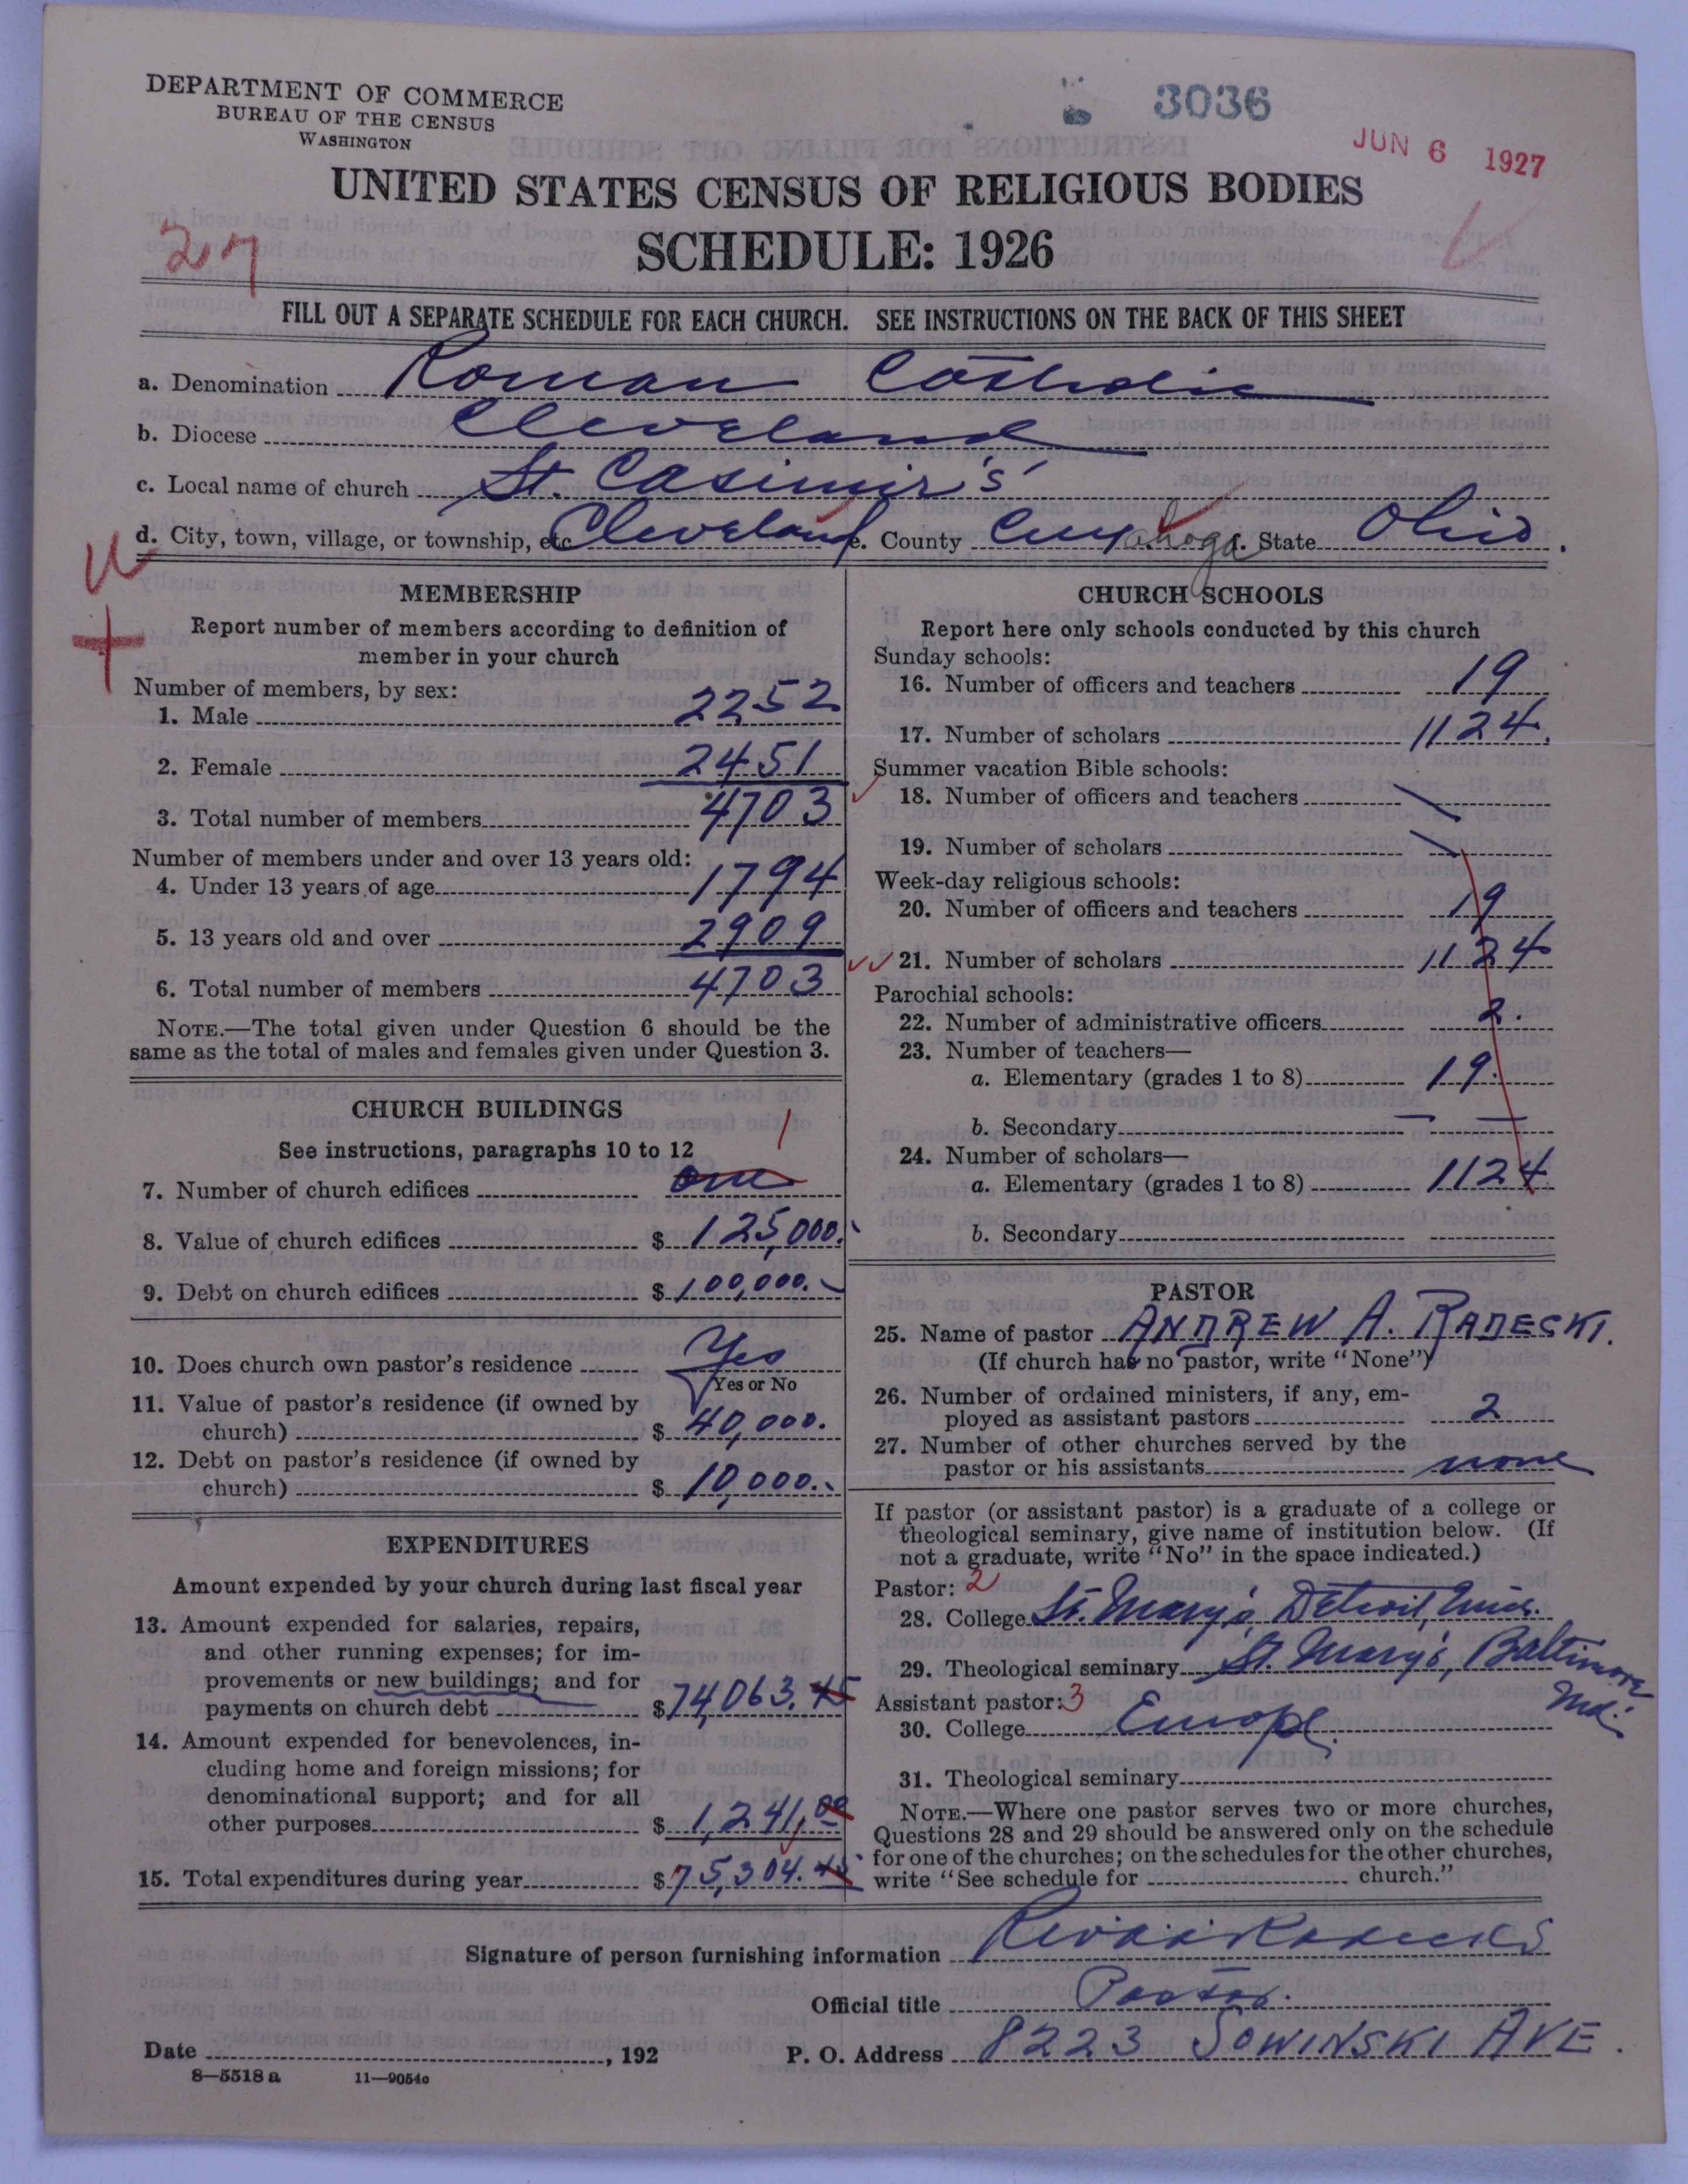 DEPARTMENT OF COMMERCE
BUREAU OF THE CENSUS
WASHINGTON
3036
JUN 6 1927
UNITED STATES CENSUS OF RELIGIOUS BODIES
SCHEDULE: 1926
27
FILL OUT A SEPARATE SCHEDULE FOR EACH CHURCH. SEE INSTRUCTIONS ON THE BACK OF THIS SHEET
a. Denomination Roman Catholic
b. Diocese Cleveland
c. Local name of church St. Casimir's
d. City, town, village, or township, etc Cleveland e. County Cuyahoga f. State Ohio.
MEMBERSHIP
Report number of members according to definition of
member in your church
Number of members, by sex:
1. Male 2252
2. Female 2451
3. Total number of members 4703
Number of members under and over 13 years old:
4. Under 13 years of age 1794
5. 13 years old and over 2909
6. Total number of members 4703
NOTE.—The total given under Question 6 should be the
same as the total of males and females given under Question 3.
CHURCH BUILDINGS
See instructions, paragraphs 10 to 12
1
7. Number of church edifices one
8. Value of church edifices $ 125,000.
9. Debt on church edifices $ 100,000.
10. Does church own pastor's residence Yes
Yes or No
11. Value of pastor's residence (if owned by
church) $ 40,000.
12. Debt on pastor's residence (if owned by
church) $ 10,000.
EXPENDITURES
Amount expended by your church during last fiscal year
13. Amount expended for salaries, repairs,
and other running expenses; for im-
provements or new buildings; and for
payments on church debt $ 74,063.45
14. Amount expended for benevolences, in-
cluding home and foreign missions; for
denominational support; and for all
other purposes $ 1,241.00
15. Total expenditures during year $ 75,304.45
CHURCH SCHOOLS
Report here only schools conducted by this church
Sunday schools:
16. Number of officers and teachers 19
17. Number of scholars 1124.
Summer vacation Bible schools:
18. Number of officers and teachers
19. Number of scholars
Week-day religious schools:
20. Number of officers and teachers 19
21. Number of scholars 1124
Parochial schools:
22. Number of administrative officers 2.
23. Number of teachers—
a. Elementary (grades 1 to 8) 19.
b. Secondary
24. Number of scholars—
a. Elementary (grades 1 to 8) 1124
b. Secondary
PASTOR
25. Name of pastor ANDREW A. RADECKI.
(If church has no pastor, write "None")
26. Number of ordained ministers, if any, em-
ployed as assistant pastors 2
27. Number of other churches served by the
pastor or his assistants none
If pastor (or assistant pastor) is a graduate of a college or
theological seminary, give name of institution below. (If
not a graduate, write "No" in the space indicated.)
Pastor: 2
28. College St. Mary's, Detroit, Mich.
29. Theological seminary St. Mary's, Baltimore
Md.
Assistant pastor: 3
30. College Europe.
31. Theological seminary
NOTE.—Where one pastor serves two or more churches,
Questions 28 and 29 should be answered only on the schedule
for one of the churches; on the schedules for the other churches,
write "See schedule for church."
Signature of person furnishing information Rev. A. A. Radecki
Official title Pastor.
Date , 192 P. O. Address 8223 SOWINSKI AVE.
8—5518 a 11—9054c